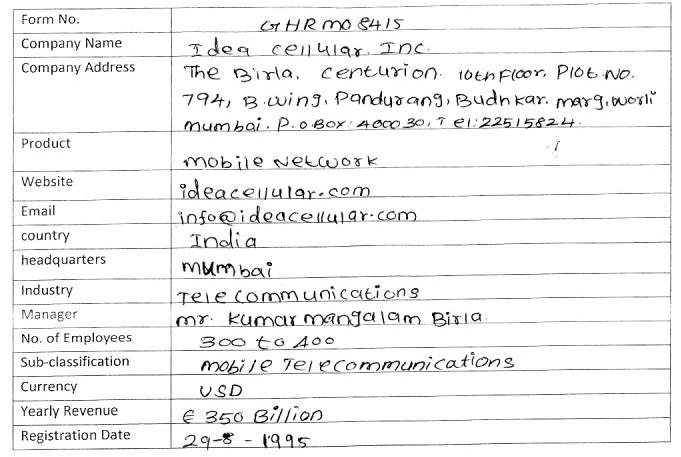 Form No. GHRMO8415
Company Name Idea cellular, Inc.
Company Address The Birla, centurion. 10th Floor, Plot No.
794, B.wing, Pandurang, Budhkar. marg, worli
mumbai. P.o Box: 400030, Tel:22515824.
Product mobile Network
Website ideacellular.com
Email info@ideacellular.com
country India
headquarters mumbai
Industry Telecommunications
Manager mr. Kumar mangalam Birla.
No. of Employees 300 to 400
Sub-classification mobile Telecommunications
Currency USD
Yearly Revenue € 350 Billion
Registration Date 29-8-1995